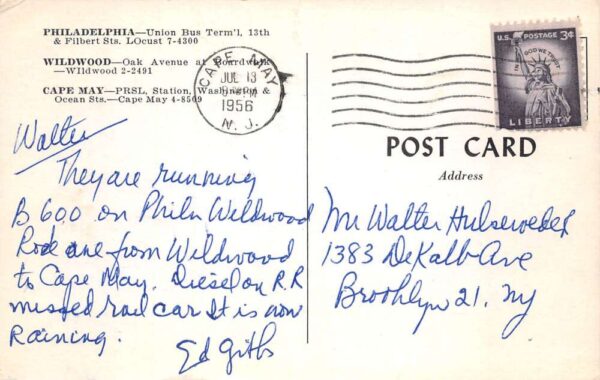 PHILADELPHIA—Union Bus Term'l, 13th
& Filbert Sts. LOcust 7-4300
WILDWOOD—Oak Avenue at Boardwalk
—WIldwood 2-2491
CAPE MAY—PRSL, Station, Washington &
Ocean Sts.—Cape May 4-8509
CAPE MAY
JUL 13
1956
N. J.
U.S. POSTAGE 3¢
IN GOD WE TRUST
LIBERTY
POST CARD
Address
Walter
They are running
B 600 on Phila Wildwood
one from Wildwood
to Cape May. Diesel on R.R
missed rail car It is now
Raining.
Ed Gibbs
Mr Walter
1383 DeKalb Ave
Brooklyn 21. NY